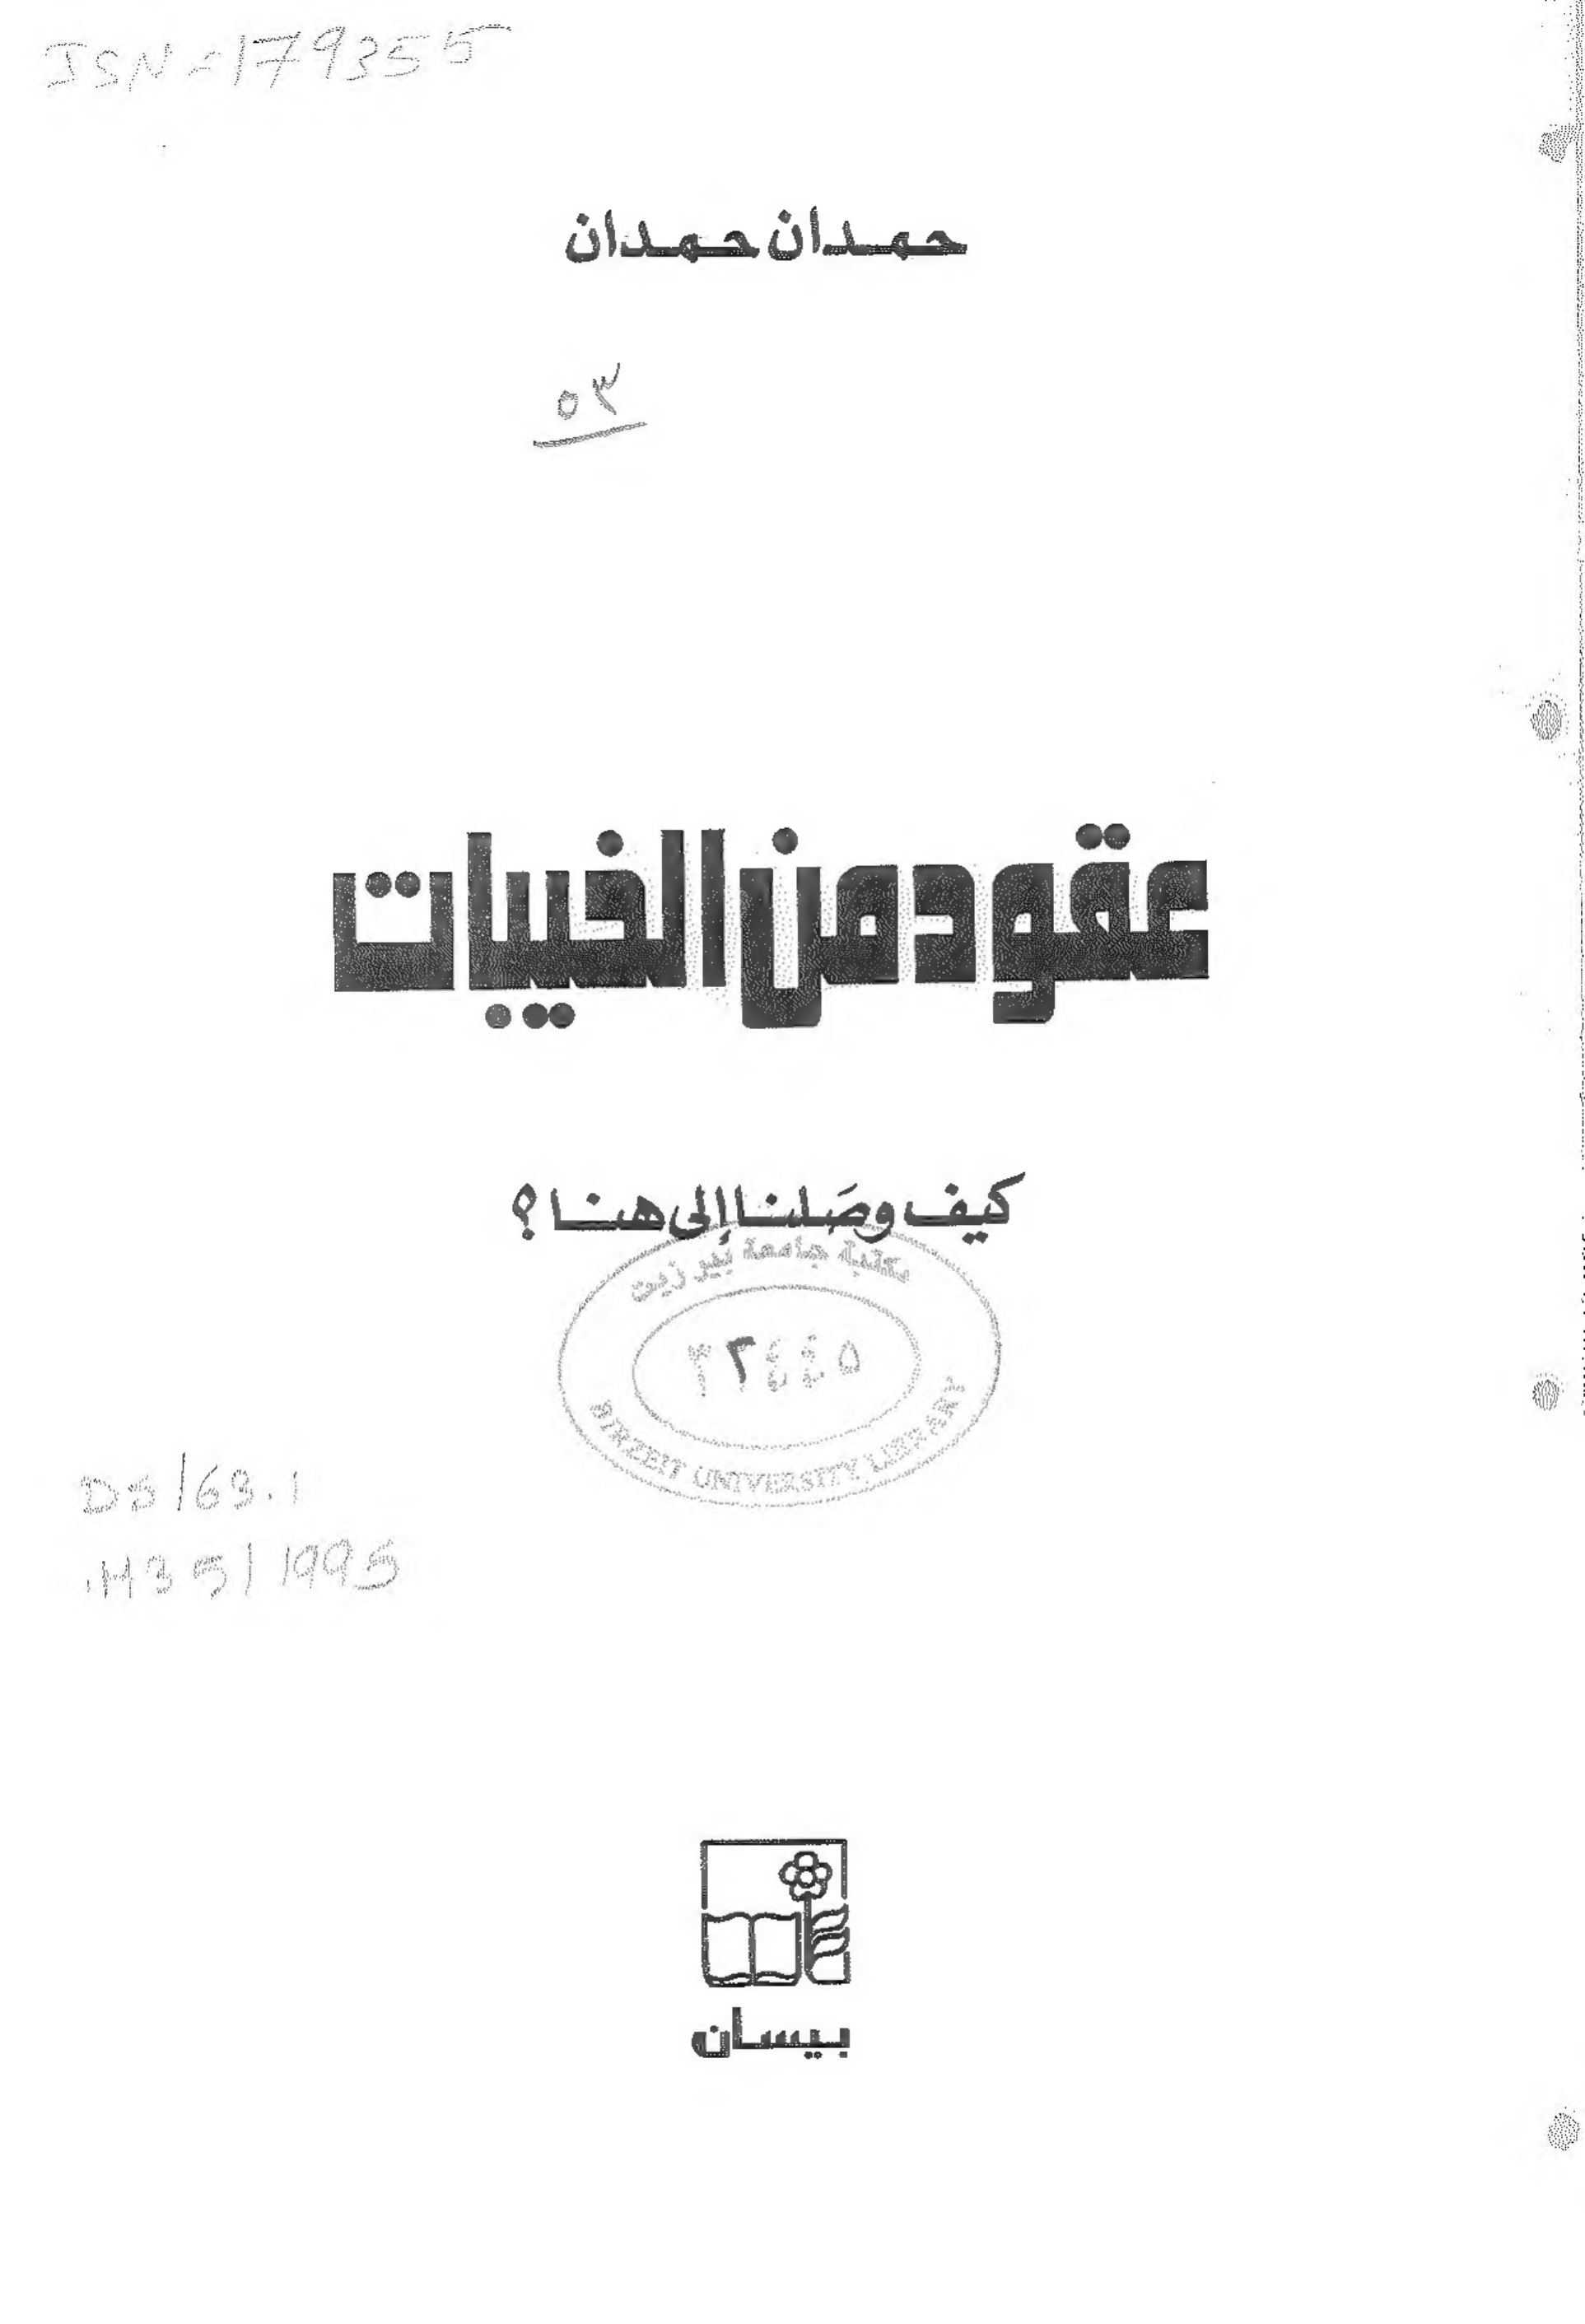 JSN=179355
حمدان حمدان
٥٣
عقود من الخيبات
كيف وصَلنا إلى هنا؟
مكتبة جامعة بير زيت
٣٢٤٤٥
BIRZEIT UNIVERSITY LIBRARY
DS/63.1
.H35/1995
بيسان